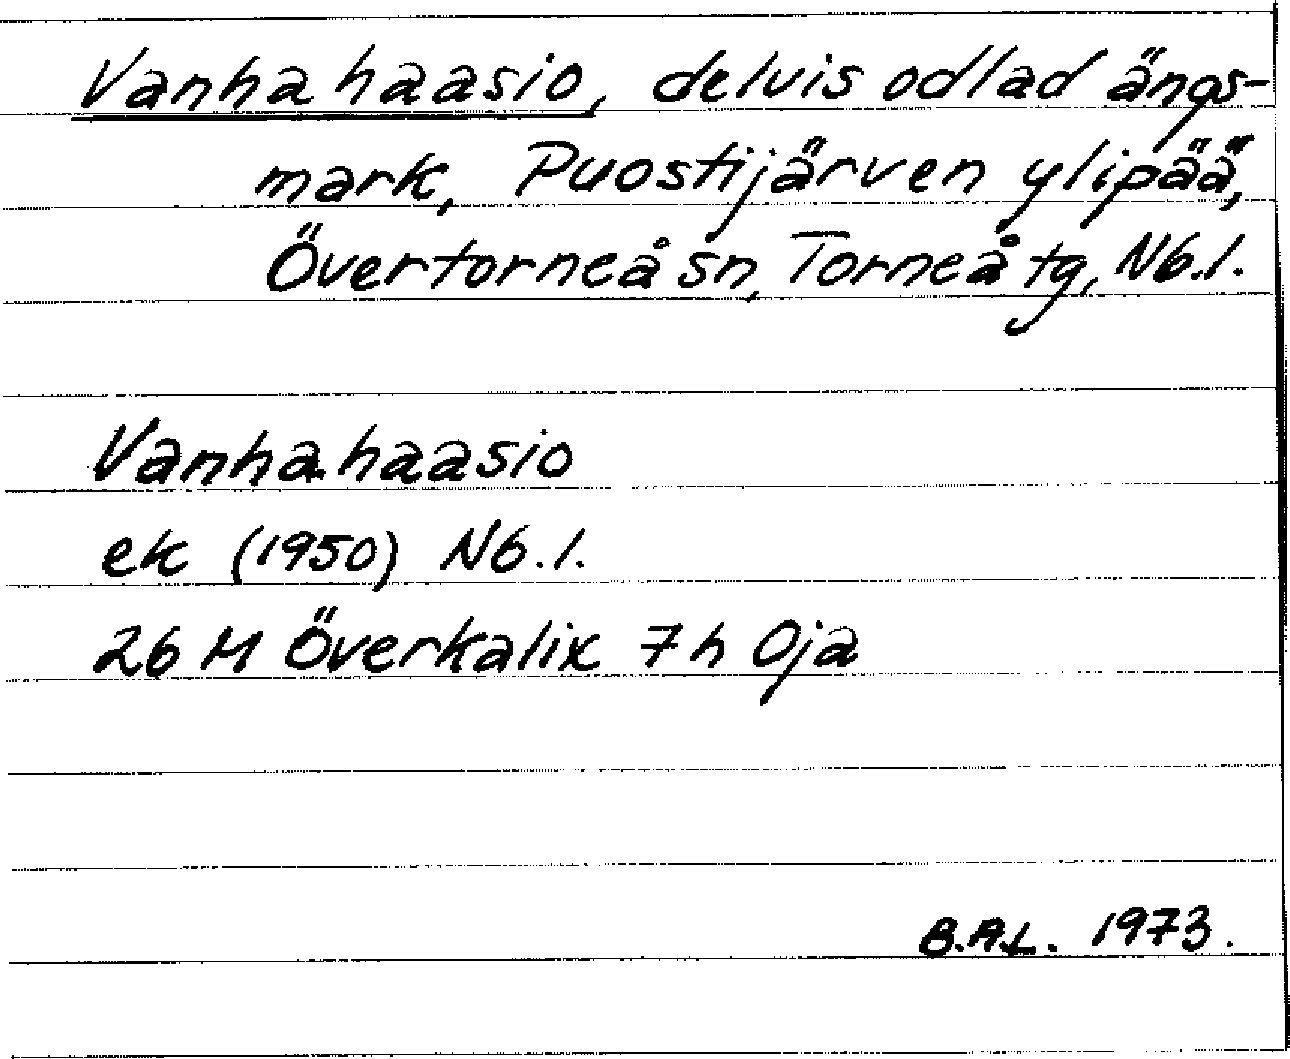 Vanha haasio, delvis odlad ängs-
mark, Puostijärven ylipää,
Övertorneå sn, Torneå tg, Nb.l.
Vanha haasio
ek (1950) Nb.l.
26 M Överkalix 7h Oja
B.A.L. 1973.